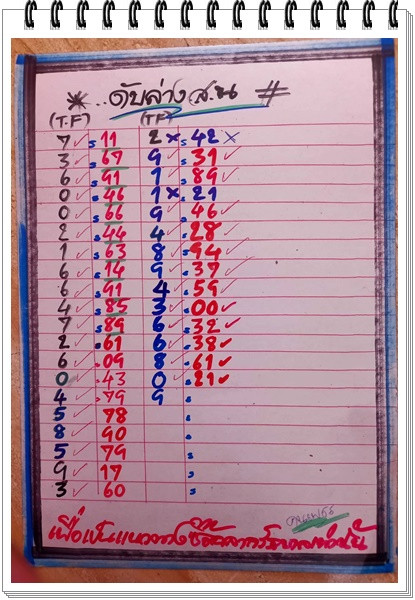 * ..ดับล่าง ส.น #
(T.F) (T.F)
7✓ s 11 2× s 42×
3✓ s 67 9✓ s 31✓
6✓ s 91 1✓ s 89✓
0✓ s 46 1× s 21
0✓ s 66 9✓ s 46✓
2✓ s 44 4✓ s 28✓
1✓ s 63 8✓ s 94✓
6✓ s 14 9✓ s 37✓
6✓ s 91 4 s 59✓
4✓ s 85 3✓ s 00✓
7✓ s 89 6✓ s 32✓
2✓ s 61 6✓ s 38✓
6✓ . 09 8✓ s 61✓
0✓ . 43 0✓ s 21✓
4✓ . 79 9
5✓ 78
8✓ 90
5✓ 79
9✓ 17
3✓ 60
เพื่อเป็นแนวทาง